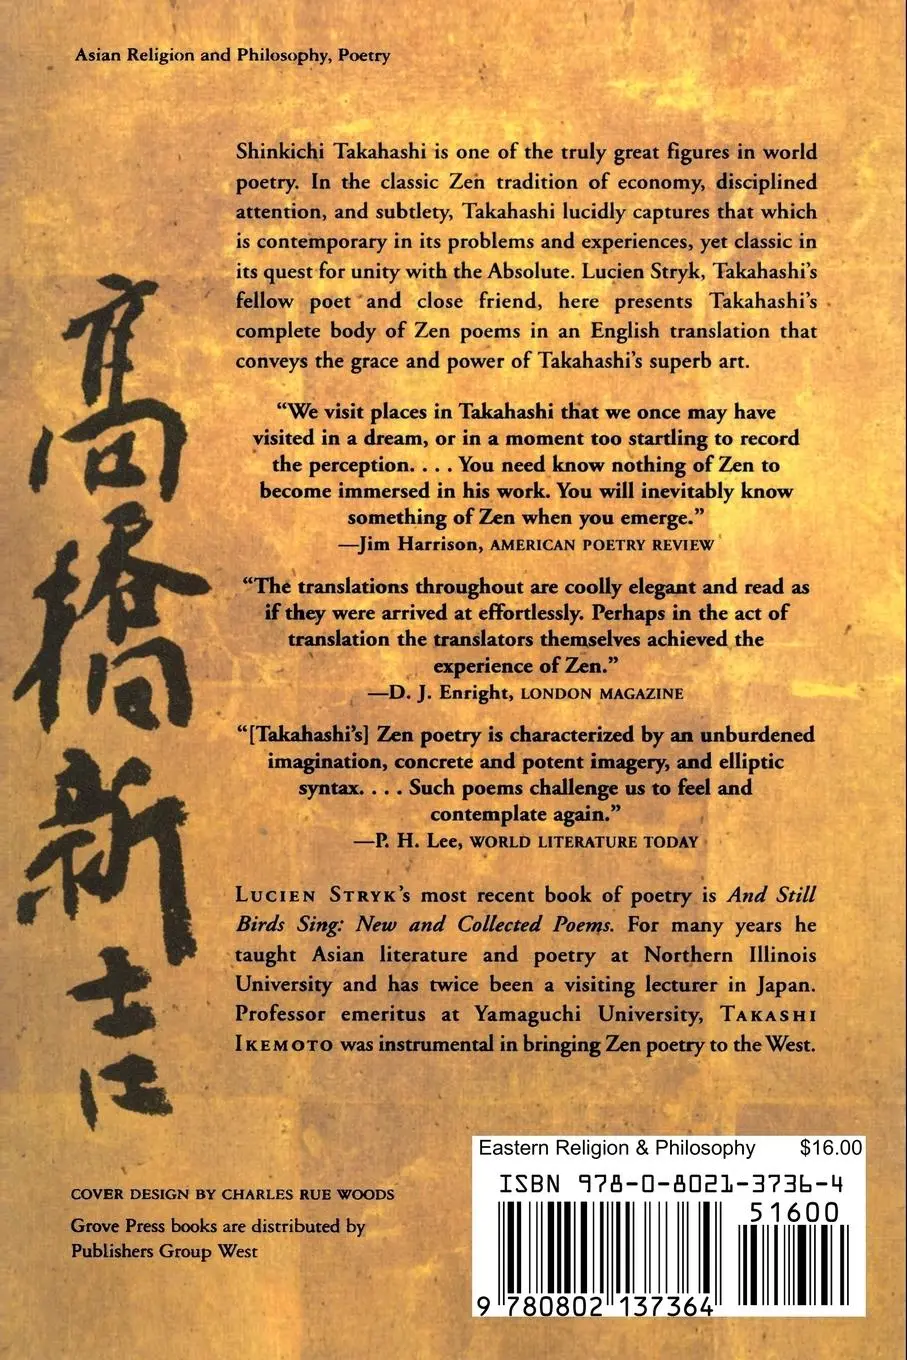 Asian Religion and Philosophy, Poetry
Shinkichi Takahashi is one of the truly great figures in world
poetry. In the classic Zen tradition of economy, disciplined
attention, and subtlety, Takahashi lucidly captures that which
is contemporary in its problems and experiences, yet classic in
its quest for unity with the Absolute. Lucien Stryk, Takahashi's
fellow poet and close friend, here presents Takahashi's
complete body of Zen poems in an English translation that
conveys the grace and power of Takahashi's superb art.
“We visit places in Takahashi that we once may have
visited in a dream, or in a moment too startling to record
the perception. . . . You need know nothing of Zen to
become immersed in his work. You will inevitably know
something of Zen when you emerge.”
—Jim Harrison, AMERICAN POETRY REVIEW
“The translations throughout are coolly elegant and read as
if they were arrived at effortlessly. Perhaps in the act of
translation the translators themselves achieved the
experience of Zen.”
—D. J. Enright, LONDON MAGAZINE
“[Takahashi's] Zen poetry is characterized by an unburdened
imagination, concrete and potent imagery, and elliptic
syntax. . . . Such poems challenge us to feel and
contemplate again.”
—P. H. Lee, WORLD LITERATURE TODAY
LUCIEN STRYK's most recent book of poetry is And Still
Birds Sing: New and Collected Poems. For many years he
taught Asian literature and poetry at Northern Illinois
University and has twice been a visiting lecturer in Japan.
Professor emeritus at Yamaguchi University, TAKASHI
IKEMOTO was instrumental in bringing Zen poetry to the West.
高橋新吉
COVER DESIGN BY CHARLES RUE WOODS
Grove Press books are distributed by
Publishers Group West
Eastern Religion & Philosophy $16.00
ISBN 978-0-8021-3736-4
51600
9 780802 137364